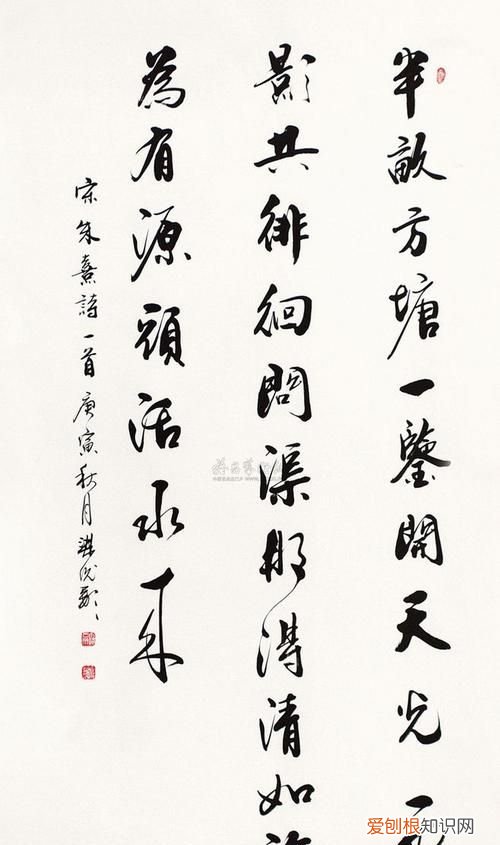 半畝方塘一鑒開天光
影共徘徊問渠那得清如許
為有源頭活水來
宋朱熹詩一首庚寅秋月
爱刨根知识网